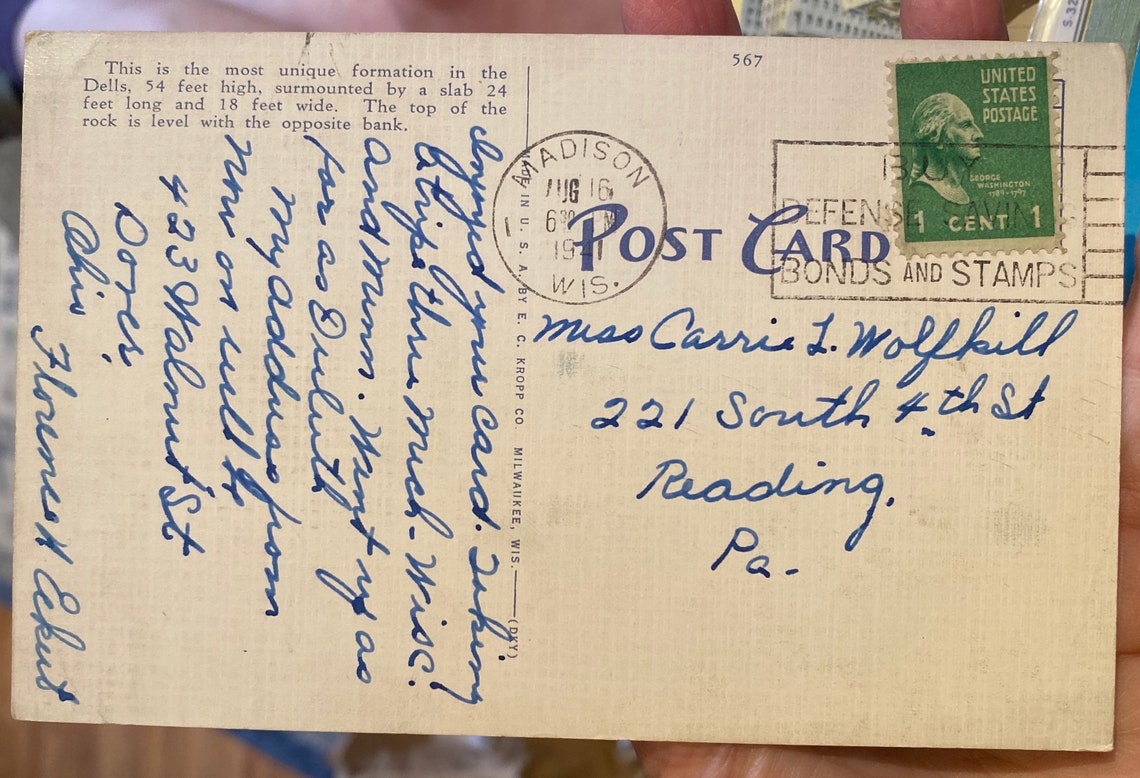 This is the most unique formation in the
Dells, 54 feet high, surmounted by a slab 24
feet long and 18 feet wide. The top of the
rock is level with the opposite bank.
567
UNITED
STATES
POSTAGE
GEORGE
WASHINGTON
1789-1797
1 CENT 1
MADISON
AUG 16
1941
WIS.
BUY
DEFENSE SAVINGS
BONDS AND STAMPS
POST CARD
MADE IN U. S. A. BY E. C. KROPP CO. MILWAUKEE, WIS.
(DKY)
Miss Carrie L. Wolfkill
221 South 4th St
Reading,
Pa.
Enjoyed your card. Taking
a trip thru Mich-Wisc.
and Minn. Went up as
far as Duluth
My address from
now on will be
423 Walnut St
Dover,
Ohio
Florence H Eckert